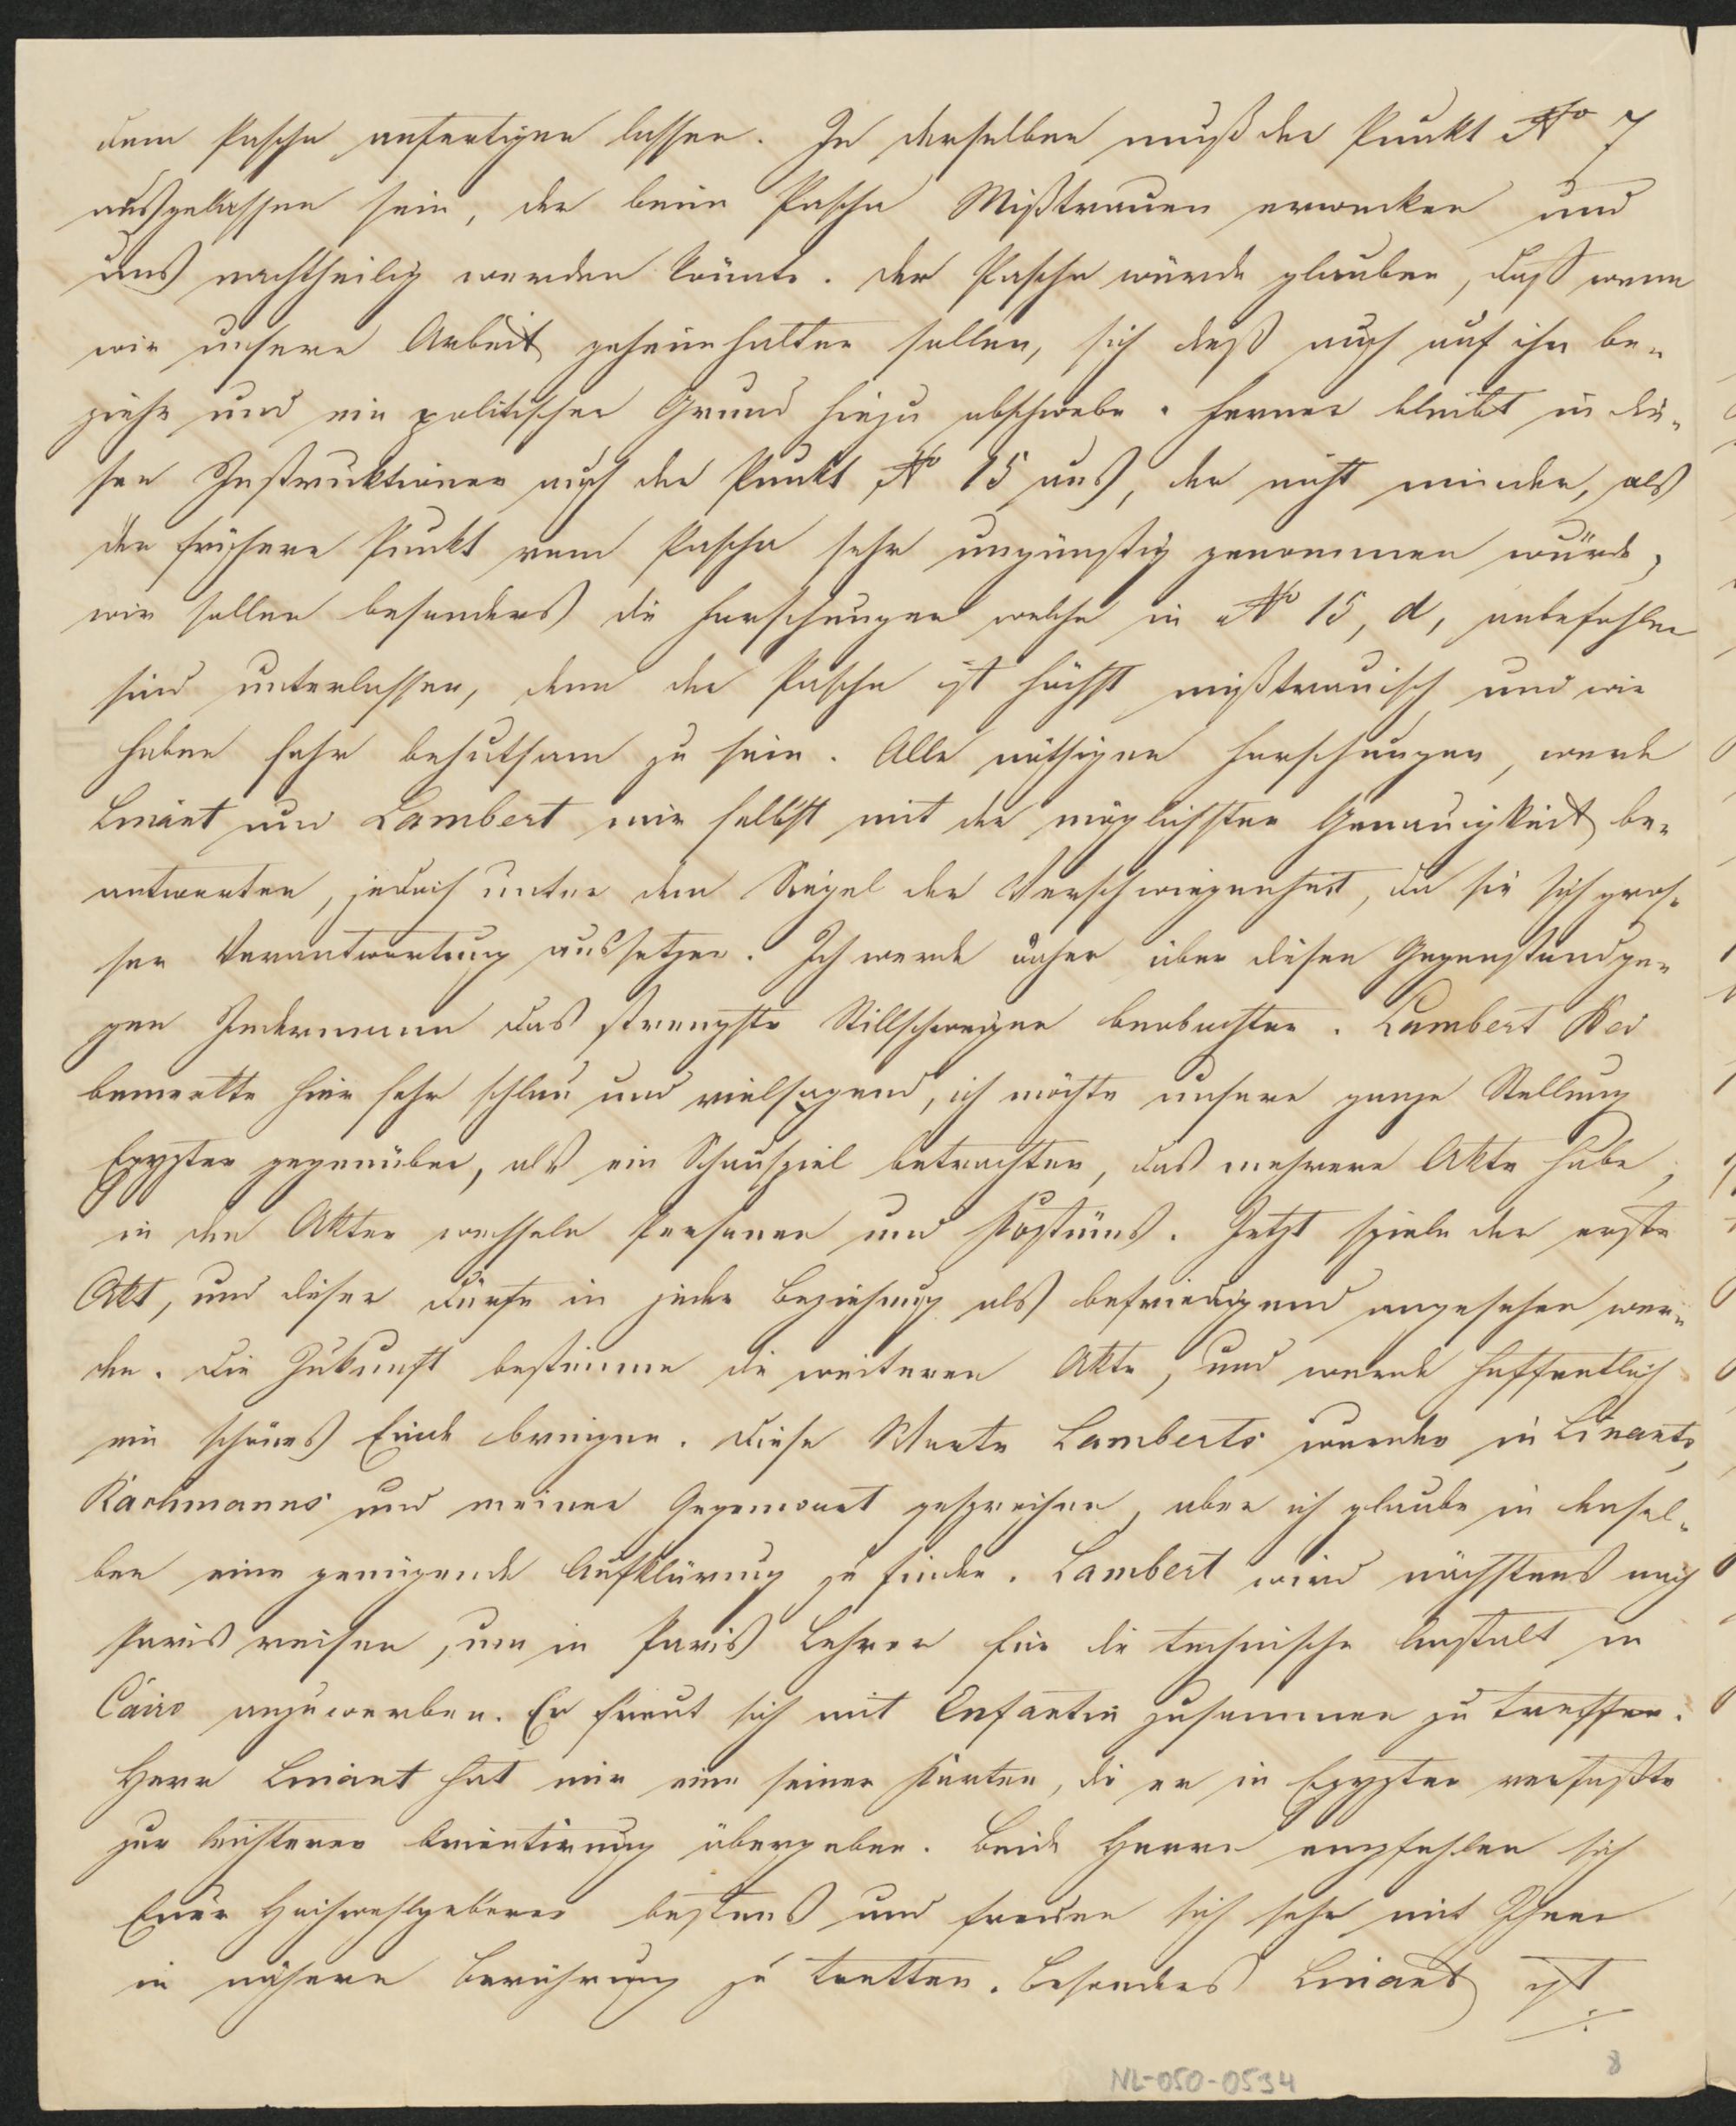 dem Pascha anfertigen lassen. In derselben muß der Punkt No 7
ausgelassen sein, der beim Pascha Mißtrauen erwecken und
uns nachtheilig werden könnte. Der Pascha würde glauben, daß wenn
wir unsere Arbeit geheimhalten sollen, sich dieß auch auf ihn be-
ziehe und ein politischer Grund hiezu obschwebe. Ferner bleibt in die-
sen Instruktionen auch der Punkt No 15 aus, der nicht minder, als
der frühere Punkt vom Pascha sehr ungünstig genommen würde,
wir sollen besonders die Forschungen welche in No 15, d, anbefohlen
sind unterlassen, denn der Pascha ist höchst mißtrauisch und wir
haben sehr behutsam zu sein. Alle nöthigen Forschungen, werde
Linant und Lambert mir selbst mit der möglichsten Genauigkeit be-
antworten, jedoch unter dem Siegel der Verschwiegenheit, da sie sich gros-
ser Verantwortung aussetzen. Ich werde daher über diesen Gegenstand ge-
gen Jedermann das strengste Stillschweigen beobachten. Lambert Bei
bemerkte hier sehr schlau und vielsagend, ich möchte unsere ganze Stellung
Egypten gegenüber, als ein Schauspiel betrachten, das mehrere Akte habe,
in den Akten wechseln Personen und Kostüms. Jetzt spiele der erste
Akt, und dieser dürfe in jeder Beziehung als befriedigend angesehen wer-
den. Die Zukunft bestimme die weiteren Akte, und werde hoffentlich
ein schönes Ende bringen. Diese Worte Lamberts wurden in Linants,
Kachmanns und meiner Gegenwart gesprochen, aber ich glaube in densel-
ben eine genügende Aufklärung zu finden. Lambert wird nächstens nach
Paris reisen, um in Paris Lehrer für die technische Anstalt in
Cairo anzuwerben. Er freut sich mit Enfantin zusammen zu treffen.
Herr Linant hat mir eine seiner Karten, die er in Egypten verfaßte
zur leichteren Orientirung übergeben. Beide Herrn empfehlen sich
Euer Hochwohlgeboren bestens und freuen sich sehr mit Ihnen
in nähere Berührung zu tretten. Besonders Linant ist
NL-050-0534
8